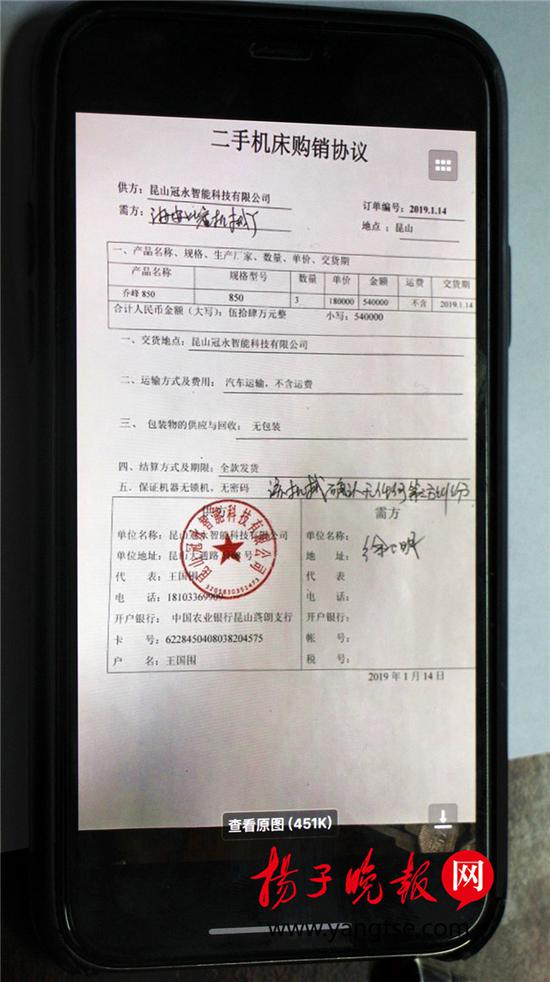 二手机床购销协议
供方：昆山冠永智能科技有限公司
订单编号：2019.1.14
需方：
地点：昆山
一、产品名称、规格、生产厂家、数量、单价、交货期
产品名称 规格型号 数量 单价 金额 运费 交货期
乔峰 850 850 3 180000 540000 不含 2019.1.14
合计人民币金额（大写）：伍拾肆万元整 小写：540000
一、交货地点：昆山冠永智能科技有限公司
二、运输方式及费用： 汽车运输，不含运费
三、 包装物的供应与回收： 无包装
四、结算方式及期限：全款发货
五、保证机器无锁机，无密码
供方 需方
单位名称：昆山冠永智能科技有限公司 单位名称：
单位地址：昆山 地 址：
代 表：王国围 代表
电 话： 电 话：
开户银行： 中国农业银行昆山蓬朗支行 开户银行：
卡 号：6228450408038204575 帐 号：
户 名：王国围 税 号：
2019 年 1 月 14 日
昆山冠永智能科技有限公司
查看原图 (451K)
扬子晚报网
www.yangtse.com